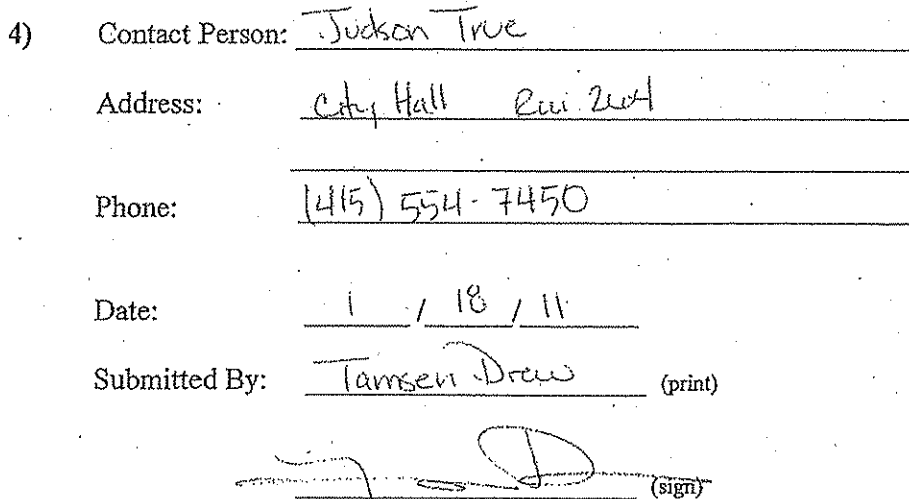 4) Contact Person: Judson True
Address: City Hall Rm. 264
Phone: (415) 554-7450
Date: 1 / 18 / 11
Submitted By: Tamsen Drew (print)
(sign)